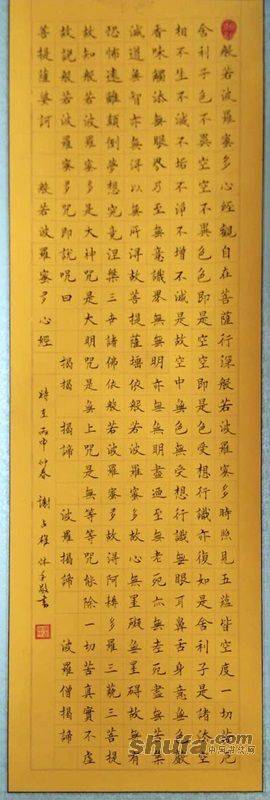 般若波羅蜜多心經觀自在菩薩行深般若波羅蜜多時照見五蘊皆空度一切苦厄
舍利子色不異空空不異色色即是空空即是色受想行識亦復如是舍利子是諸法空
相不生不滅不垢不淨不增不減是故空中無色無受想行識無眼耳鼻舌身意無色聲
香味觸法無眼界乃至無意識界無無明亦無無明盡乃至無老死亦無老死盡無苦集
滅道無智亦無得以無所得故菩提薩埵依般若波羅蜜多故心無罣礙無罣礙故無有
恐怖遠離顛倒夢想究竟涅槃三世諸佛依般若波羅蜜多故得阿耨多羅三藐三菩提
故知般若波羅蜜多是大神咒是大明咒是無上咒是無等等咒能除一切苦真實不虛
故說般若波羅蜜多咒即說咒曰 揭諦 揭諦 波羅揭諦 波羅僧揭諦
菩提薩婆訶 般若波羅蜜多心經 丙申仲春 謝占雄 沐手敬書
shufa.com
中国书法网